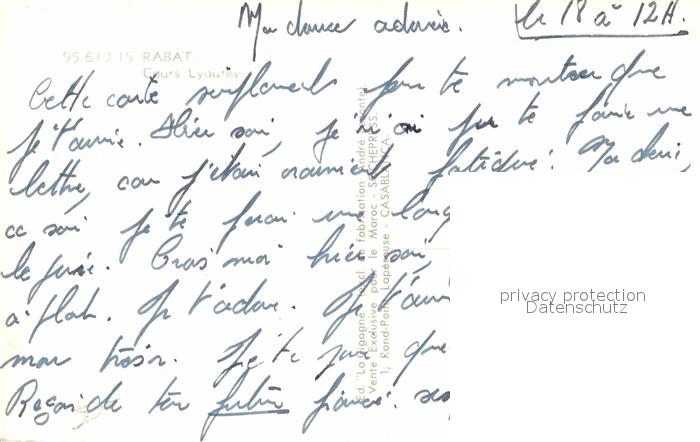 Ma douce adorée. le 18 à 12H.
95.610.15 RABAT
Cours Lyautey
Cette carte simplement pour te montrer que
je t'aime. Hier soir, je n'ai pu te faire une
lettre, car j'étais vraiment fatigué. Ma chérie,
ce soir je te ferai une long
le jure. Crois moi hier soir,
à plat. Je t'adore. Je t'aim
mon trésor. Je te jure que
Reçois de ton futur fiancé. ses
Ed. "La Cigogne"
Vente Exclusive pour le Maroc - SOCHEPRESS.
1, Rond-Point Lapérouse - CASABLANCA.
privacy protection
Datenschutz